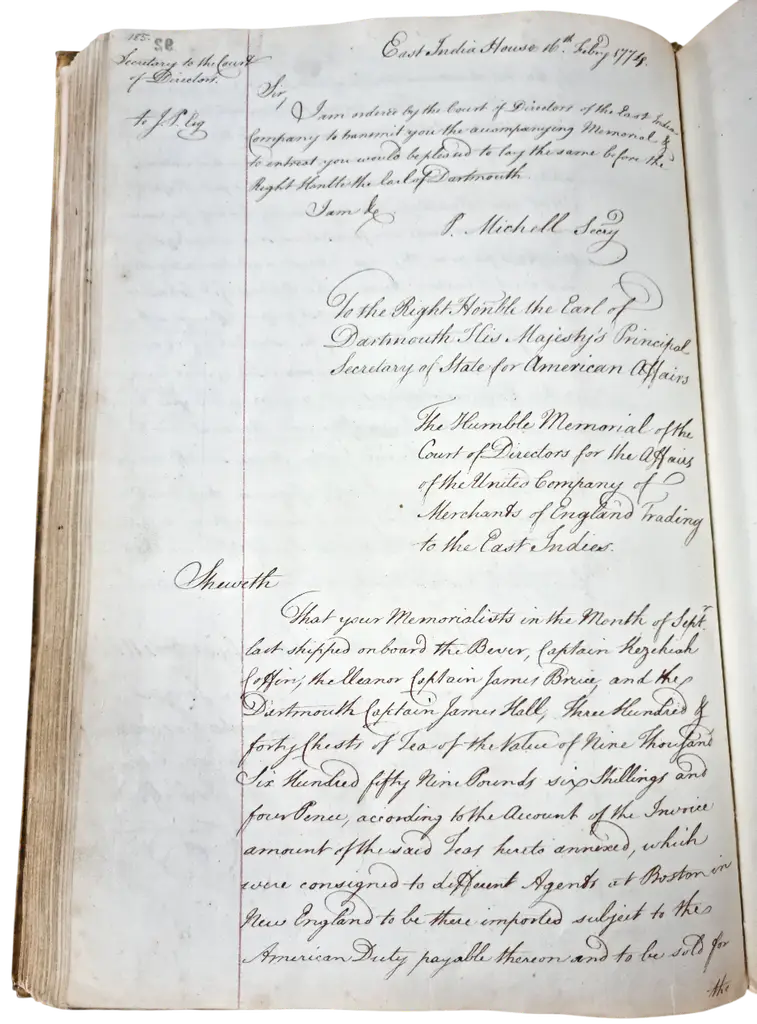 185.
Secretary to the Court
of Directors.
to J. P. Esq
East India House 16th. Febry 1774.
Sir,
I am ordered by the Court of Directors of the East India
Company to transmit you the accompanying Memorial &
to intreat you would be pleased to lay the same before the
Right Honble the Earl of Dartmouth.
I am &c
P. Michell Secry
To the Right Honble the Earl of
Dartmouth His Majesty's Principal
Secretary of State for American Affairs
The Humble Memorial of the
Court of Directors for the Affairs
of the United Company of
Merchants of England Trading
to the East Indies.
Sheweth
That your Memorialists in the Month of Septr.
last shipped onboard the Bever, Captain Hezekiah
Coffin, the Eleanor Captain James Bruce, and the
Dartmouth Captain James Hall, Three Hundred &
forty Chests of Tea of the Value of Nine Thousand
Six Hundred fifty Nine Pounds six Shillings and
four Pence, according to the Account of the Invoice
amount of the said Teas hereto annexed, which
were consigned to different Agents at Boston in
New England to be there imported subject to the
American Duty payable thereon and to be sold for
the